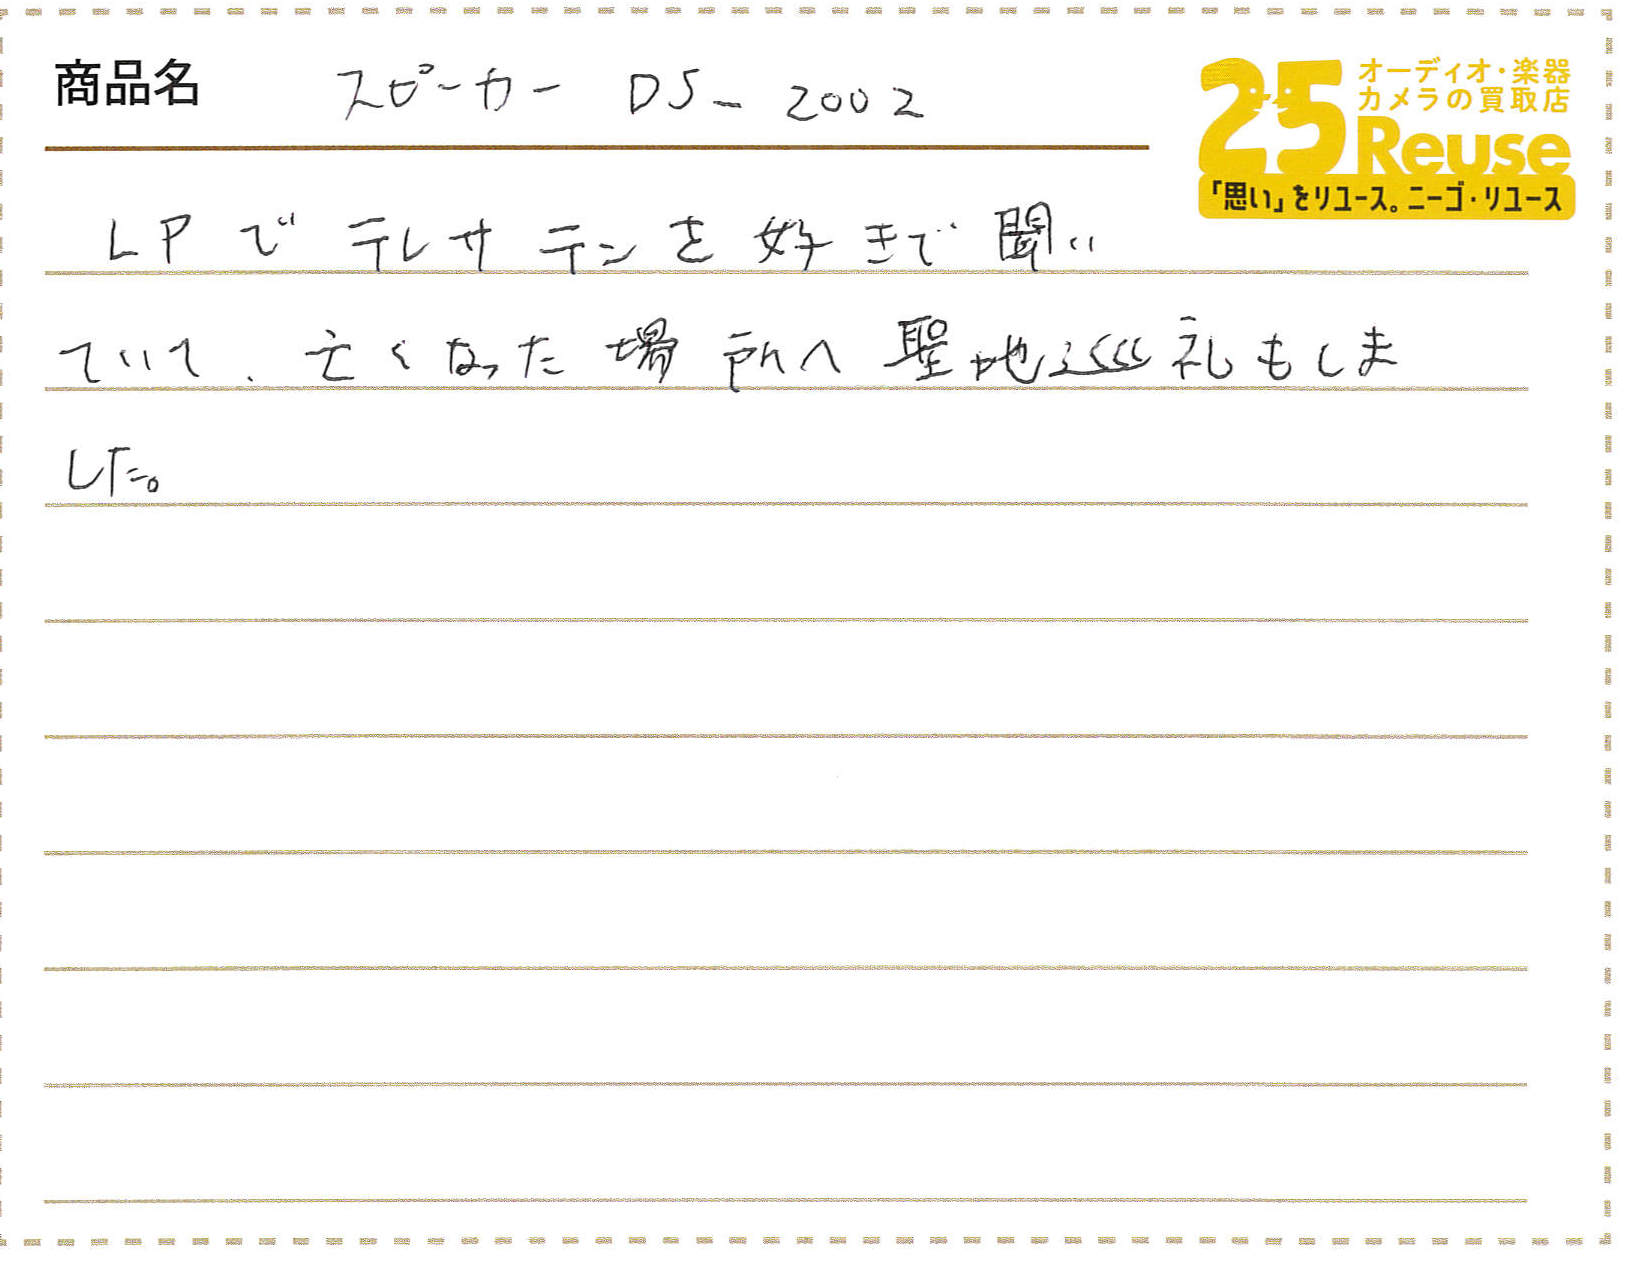 商品名 スピーカー DS-2002
25 オーディオ・楽器
カメラの買取店
Reuse
「思い」をリユース。ニーゴ・リユース
LPでテレサテンを好きで聞い
ていて、亡くなった場所へ聖地巡礼もしま
した。